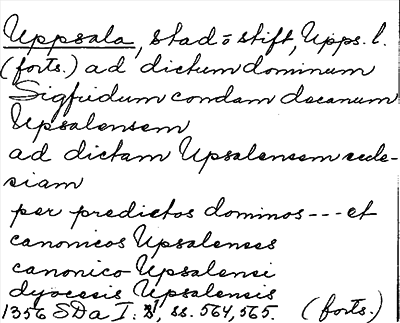 Uppsala, stad o stift, Upps. l.
(forts.) ad dictum dominum
Sigfridum condam decanum
Upsalensem
ad dictam Upsalensem eccle-
siam
per predictos dominos --- et
canonicos Upsalenses
canonico Upsalensi
dyocesis Upsalensis
1356 SDa I: , ss. 564, 565. (forts.)